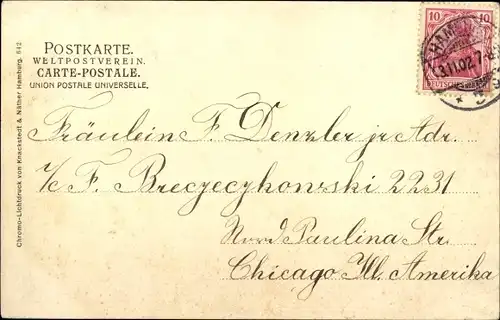 POSTKARTE.
WELTPOSTVEREIN.
CARTE-POSTALE.
UNION POSTALE UNIVERSELLE,
10 10
HAMBURG
3.11.02.7-8
DEUTSCHES REICH
Fräulein F. Denzler jr Adr.
℅ F. Brecyecykowski 2231
Nord Paulina Str.
Chicago Ill. Amerika
Chromo-Lichtdruck von Knackstedt & Näther Hamburg. 642